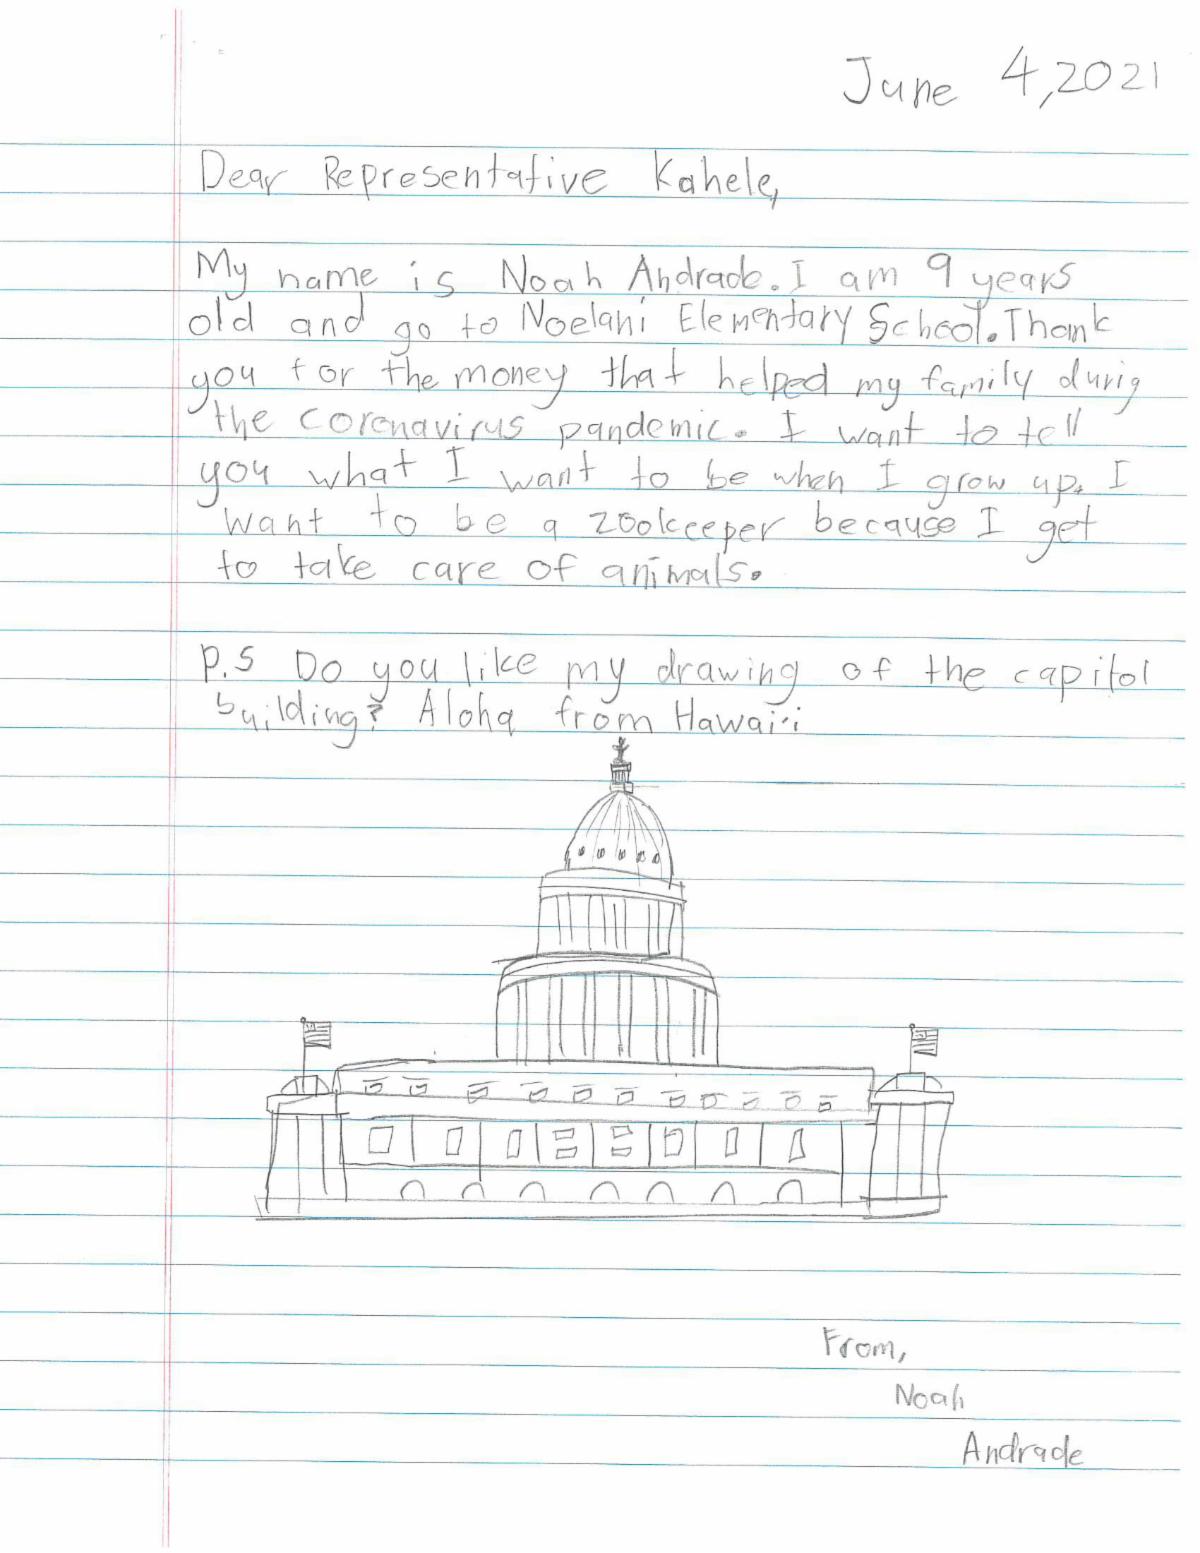 June 4,2021
Dear Representative Kahele,
My name is Noah Andrade. I am 9 years
old and go to Noelani Elementary School. Thank
you for the money that helped my family durig
the coronavirus pandemic. I want to tell
you what I want to be when I grow up. I
want to be a zookeeper because I get
to take care of animals.
P.S Do you like my drawing of the capitol
building? Aloha from Hawai'i
From,
Noah
Andrade